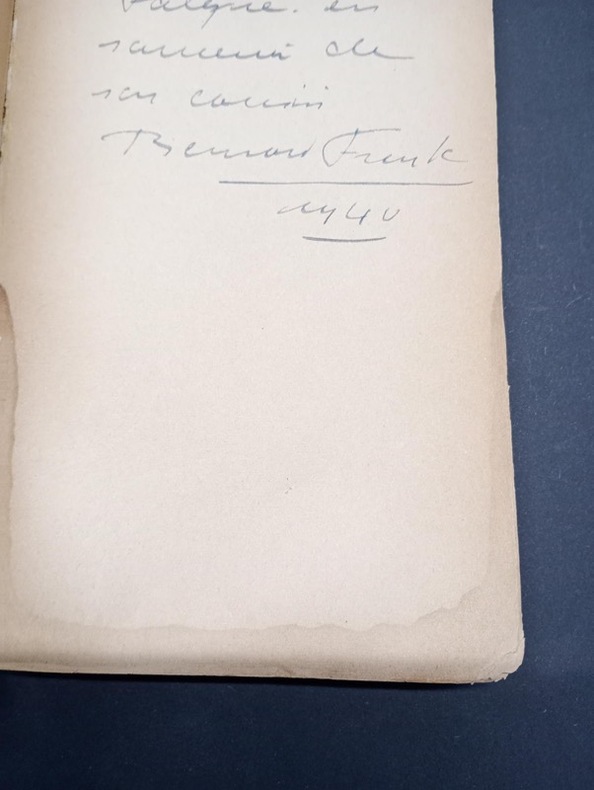 en
souvenir de
son cousin
Bernard Frank
1940